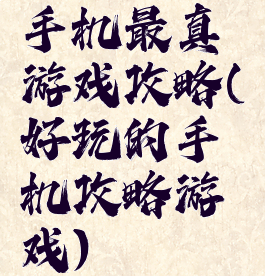 手机最真
游戏攻略(
好玩的手
机攻略游
戏)